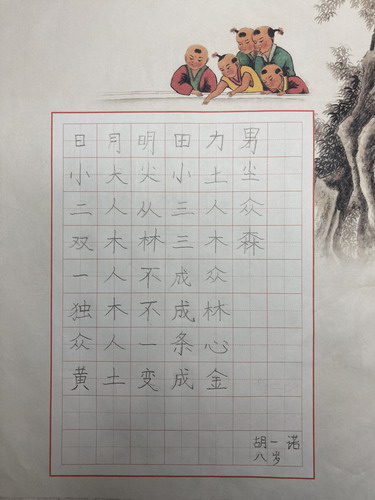 日月明田力男
小大尖小土尘
二人从三人众
双木林三木森
一人不成众
独木不成林
众人一条心
黄土变成金
胡一诺
八岁